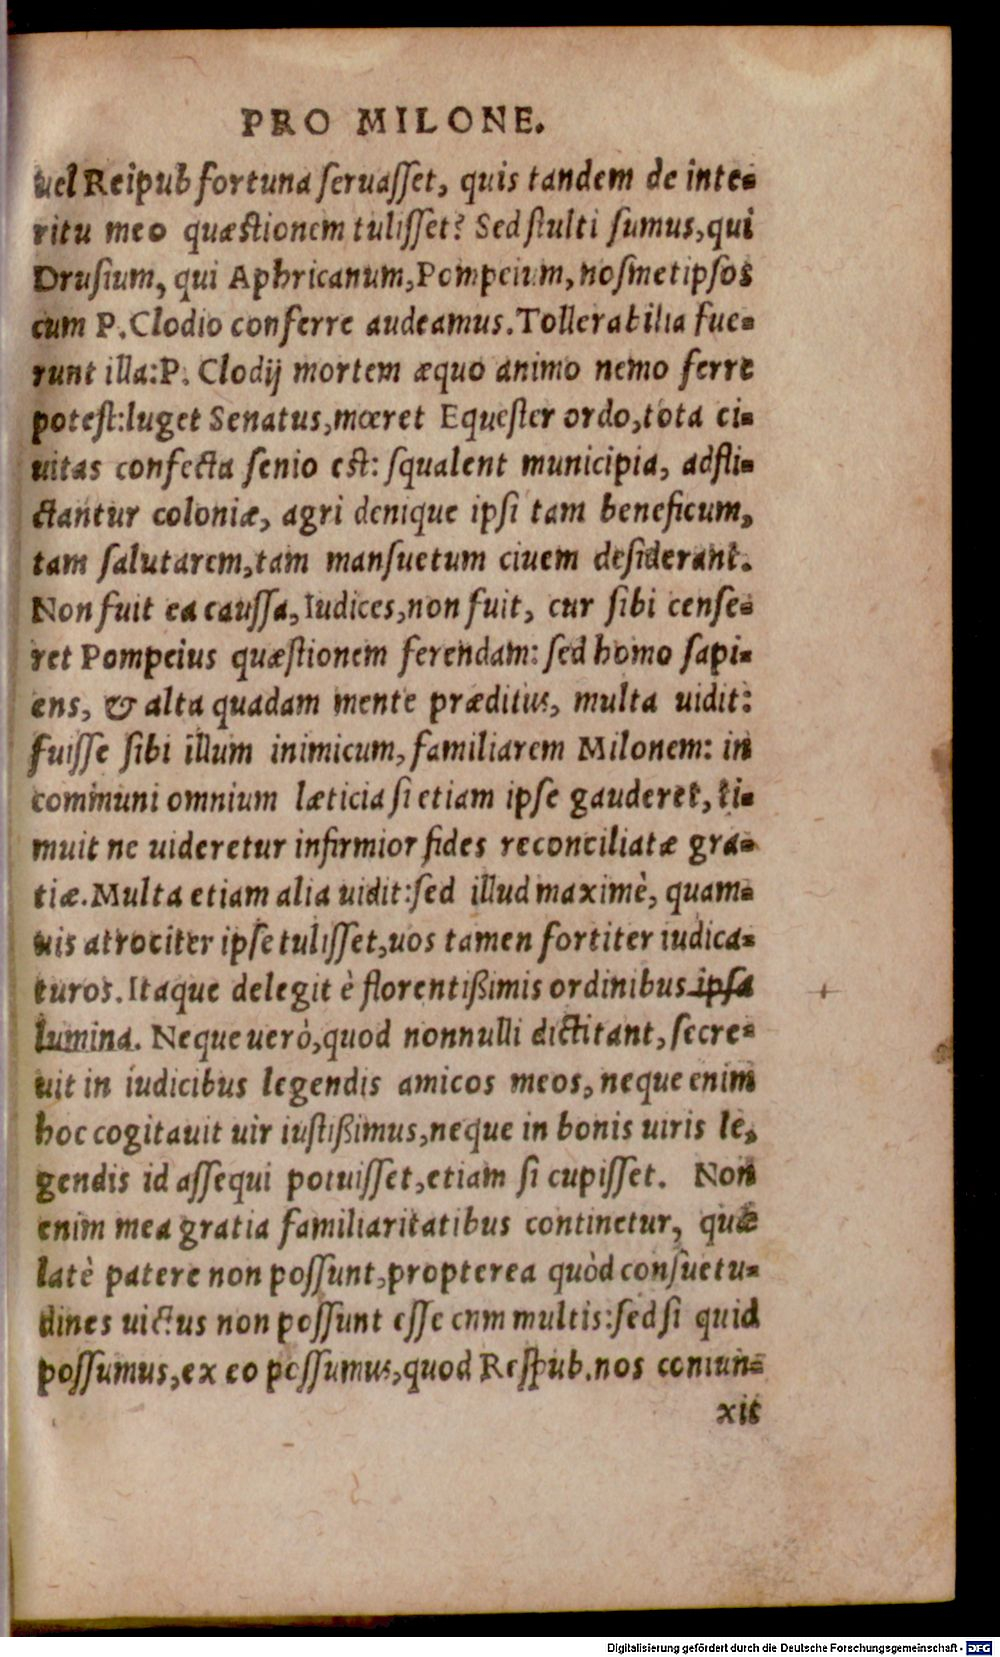 PRO MILONE.
uel Reipub fortuna seruasset, quis tandem de inte-
ritu meo quæstionem tulisset? Sed stulti sumus, qui
Drusium, qui Aphricanum, Pompeium, nosmetipsos
cum P. Clodio conferre audeamus. Tollerabilia fue-
runt illa: P. Clodij mortem æquo animo nemo ferre
potest: luget Senatus, mœret Equester ordo, tota ci-
uitas confecta senio est: squalent municipia, adfli-
ctantur coloniæ, agri denique ipsi tam beneficum,
tam salutarem, tam mansuetum ciuem desiderant.
Non fuit ea caussa, Iudices, non fuit, cur sibi cense-
ret Pompeius quæstionem ferendam: sed homo sapi-
ens, & alta quadam mente præditus, multa uidit:
fuisse sibi illum inimicum, familiarem Milonem: in
communi omnium læticia si etiam ipse gauderet, ti-
muit ne uideretur infirmior fides reconciliatæ gra-
tiæ. Multa etiam alia uidit: sed illud maximè, quam-
uis atrociter ipse tulisset, uos tamen fortiter iudica-
turos. Itaque delegit è florentißimis ordinibus ipsa
lumina. Neque uerò, quod nonnulli dictitant, secre-
uit in iudicibus legendis amicos meos, neque enim
hoc cogitauit uir iustißimus, neque in bonis uiris le,
gendis id assequi potuisset, etiam si cupisset. Non
enim mea gratia familiaritatibus continetur, quæ
latè patere non possunt, propterea quòd consuetu-
dines uictus non possunt esse cnm multis: sed si quid
possumus, ex eo possumus, quod Respub. nos coniun-
xit
Digitalisierung gefördert durch die Deutsche Forschungsgemeinschaft - DFG